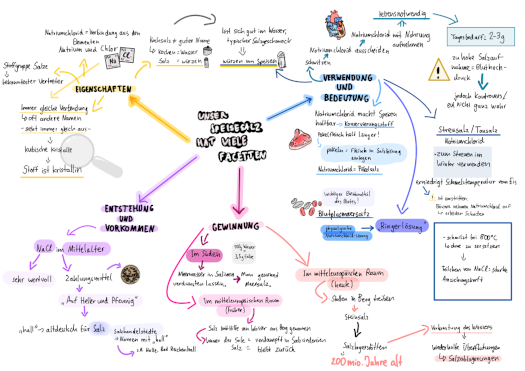 UNSER
SPEISESALZ
HAT VIELE
FACETTEN
EIGENSCHAFTEN
Natriumchlorid = Verbindung aus den
Elementen
Natrium und Chlor
Na
Cl
Stoffgruppe Salze
bekanntester Vertreter
Immer gleiche Verbindung
oft andere Namen
- sieht immer gleich aus -
kubische Kristalle
Stoff ist kristallin
guter Name
Kochen = Wasser
Salz = würzen
löst sich gut im Wasser,
typischer Salzgeschmack
würzen von Speisen
VERWENDUNG
UND
BEDEUTUNG
lebensnotwendig
Natriumchlorid mit Nahrung
aufnehmen
Natriumchlorid ausscheiden
schwitzen
Tagesbedarf: 2-3g
zu hohe Salzauf-
nahme = Bluthoch-
druck
jedoch
ganz wahr
Natriumchlorid macht Speisen
haltbar = Konservierungsstoff
Pökelfleisch hält länger!
pökeln = Fleisch in Salzlösung
einlegen
Natriumchlorid = Pökelsalz
wichtiger Bestandteil
des Blutes!
Blutplasmaersatz
physiologische
Ringerlösung
Streusalz / Tausalz
Natriumchlorid
- zum Streuen im
Winter verwenden
erniedrigt Schmelztemperatur vom Eis
- schmilzt bei 800°C
ohne zu zersetzen
Teilchen von NaCl: starke
Anziehungskraft
ENTSTEHUNG
UND
VORKOMMEN
NaCl im Mittelalter
sehr wertvoll
Zahlungsmittel
"Auf Heller und Pfennig"
"hall" → altdeutsch für Salz
Salzhandelsstädte
→ Namen mit „hall“
z.B. Halle, Bad Reichenhall
GEWINNUNG
Im Süden
100g Wasser
3,5g Salze
Meerwasser in Salinen
verdunsten lassen
Man gewinnt
Meersalz.
Im mitteleuropäischen Raum
(früher)
Salz mithilfe von Wasser aus Berg gewonnen
Wasser der Sole = verdampft in Salzsiedereien
Salz = bleibt zurück
Im mitteleuropäischen Raum
(heute)
Stollen in Berg treiben
Steinsalz
Salzlagerstätten
200 mio. Jahre alt
Verdunstung des Wassers
wiederholte Überflutungen
Salzablagerungen